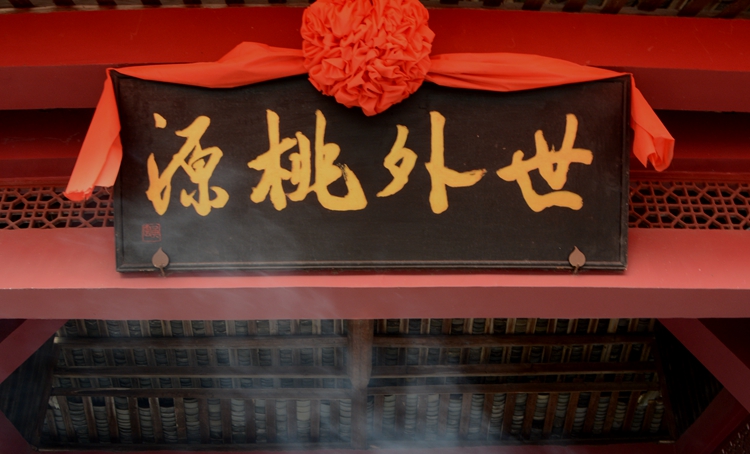 世外桃源